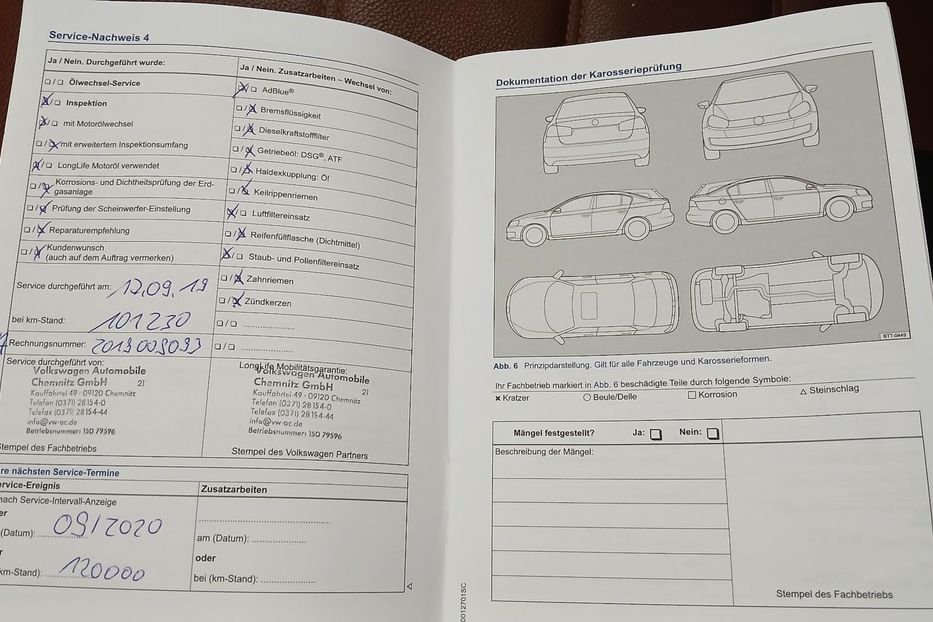 Service-Nachweis 4
Ja / Nein. Durchgeführt wurde:
❏/❏ Ölwechsel-Service
❏/❏ Inspektion
❏/❏ mit Motorölwechsel
❏/❏ mit erweitertem Inspektionsumfang
❏/❏ LongLife Motoröl verwendet
❏/❏ Korrosions- und Dichtheitsprüfung der Erd-
gasanlage
❏/❏ Prüfung der Scheinwerfer-Einstellung
❏/❏ Reparaturempfehlung
❏/❏ Kundenwunsch
(auch auf dem Auftrag vermerken)
Service durchgeführt am: 17.09.19
bei km-Stand: 101230
Rechnungsnummer: 2019009093
Service durchgeführt von:
Volkswagen Automobile
Chemnitz GmbH 21
Kauffahrtei 49 - 09120 Chemnitz
Telefon (0371) 28154-0
Telefax (0371) 28154-44
info@vw-ac.de
Betriebsnummer: 150 79596
Stempel des Fachbetriebs
Ja / Nein. Zusatzarbeiten – Wechsel von:
❏/❏ AdBlue®
❏/❏ Bremsflüssigkeit
❏/❏ Dieselkraftstofffilter
❏/❏ Getriebeöl: DSG®, ATF
❏/❏ Haldexkupplung: Öl
❏/❏ Keilrippenriemen
❏/❏ Luftfiltereinsatz
❏/❏ Reifenfüllflasche (Dichtmittel)
❏/❏ Staub- und Pollenfiltereinsatz
❏/❏ Zahnriemen
❏/❏ Zündkerzen
❏/❏ ....................
❏/❏ ....................
LongLife Mobilitätsgarantie:
Volkswagen Automobile
Chemnitz GmbH 21
Kauffahrtei 49 - 09120 Chemnitz
Telefon (0371) 28154-0
Telefax (0371) 28154-44
info@vw-ac.de
Betriebsnummer: 150 79596
Stempel des Volkswagen Partners
re nächsten Service-Termine
ervice-Ereignis
nach Service-Intervall-Anzeige
er
(Datum): 09/2020
r
km-Stand): 120000
Zusatzarbeiten
am (Datum): ....................
oder
bei (km-Stand): ....................
Dokumentation der Karosserieprüfung
BTT-0449
Abb. 6 Prinzipdarstellung. Gilt für alle Fahrzeuge und Karosserieformen.
Ihr Fachbetrieb markiert in Abb. 6 beschädigte Teile durch folgende Symbole:
× Kratzer ○ Beule/Delle □ Korrosion △ Steinschlag
Mängel festgestellt? Ja: ❏ Nein: ❏
Beschreibung der Mängel:
Stempel des Fachbetriebs
D012701SC